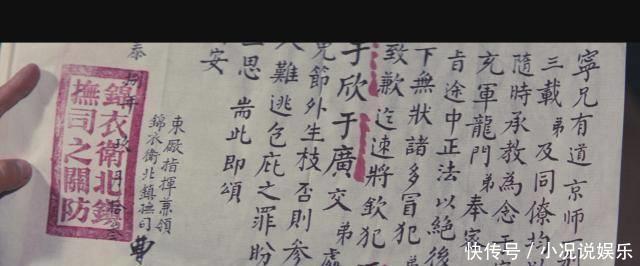 寧兄有道京師
三載弟及同僚均
隨時承教為念
充軍龍門弟奉
旨途中正法以絕後
下無狀諸多冒犯弟
致歉迄速將欽犯
于欣于廣交弟處
節外生枝否則參
人難逃包庇之罪盼
思 耑此即頌
安
東厰指揮兼領
錦衣衛北鎮撫司
錦衣衛北鎮
撫司之關防
快传号/小况说娱乐